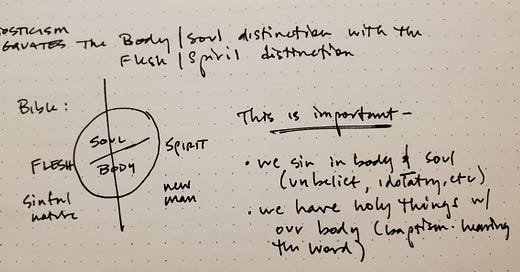 OSTICISM
EQUATES The Body | Soul distinction with the
Flesh | Spirit distinction
Bible:
SOUL
BODY
FLESH
SPIRIT
Sinful
nature
new
man
This is important –
• we sin in body & soul
(unbelief, idolatry, etc)
• we have holy things w/
our body (baptism. hearing
the word)